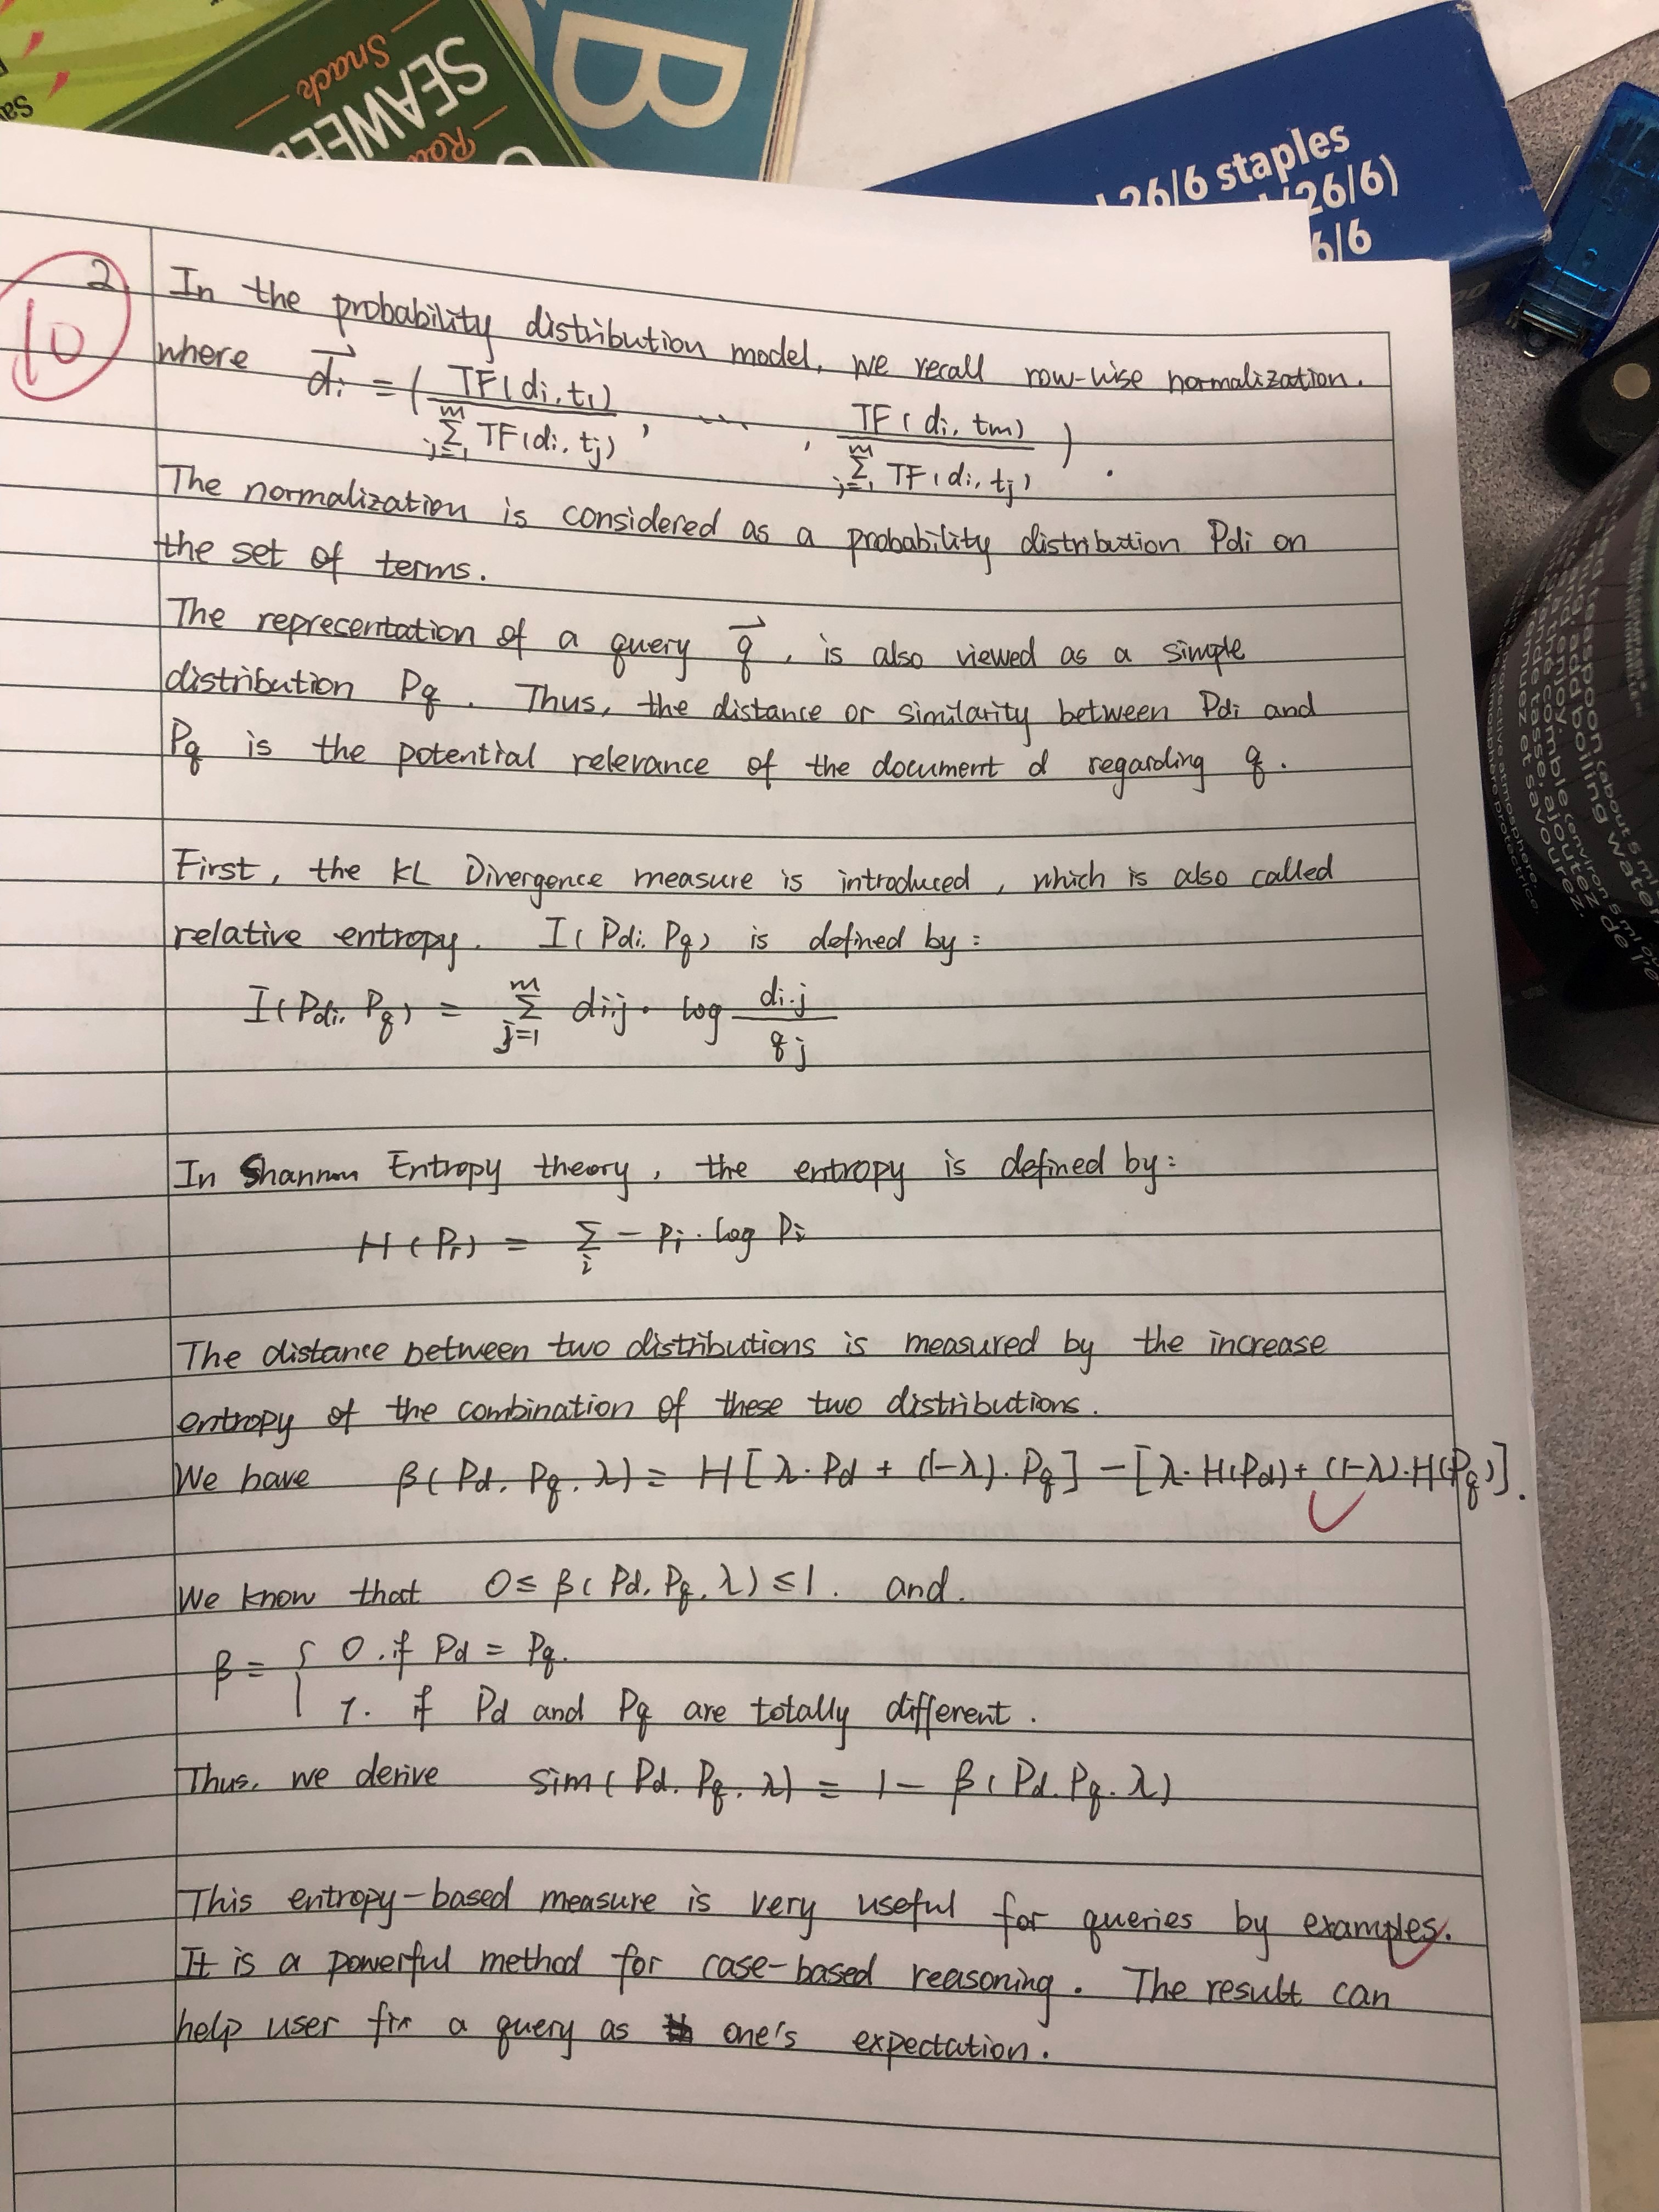 Snack
SEAWEE
B
26/6 staples
(26/6)
6/6
10
2. In the probability distribution model, we recall row-wise normalization.
where di = ( TF(di,t1) / Σ_{j=1}^{m} TF(di,tj) , ... , TF(di,tm) / Σ_{j=1}^{m} TF(di,tj) ) .
The normalization is considered as a probability distribution Pdi on
the set of terms.
The representation of a query q, is also viewed as a simple
distribution Pq. Thus, the distance or similarity between Pdi and
Pq is the potential relevance of the document d regarding q.
First, the KL Divergence measure is introduced, which is also called
relative entropy. I(Pdi, Pq) is defined by:
I(Pdi, Pq) = Σ_{j=1}^{m} di,j · log di,j / qj
In Shannon Entropy theory, the entropy is defined by:
H(Pi) = Σ_i - Pi · log Pi
The distance between two distributions is measured by the increase
entropy of the combination of these two distributions.
We have β(Pd, Pq, λ) = H[λ·Pd + (1-λ)·Pq] - [λ·H(Pd) + (1-λ)·H(Pq)].
We know that 0 ≤ β(Pd, Pq, λ) ≤ 1. and.
β = { 0. if Pd = Pq.
1. if Pd and Pq are totally different.
Thus, we derive sim(Pd, Pq, λ) = 1 - β(Pd, Pq, λ)
This entropy-based measure is very useful for queries by examples.
It is a powerful method for case-based reasoning. The result can
help user fix a query as one's expectation.